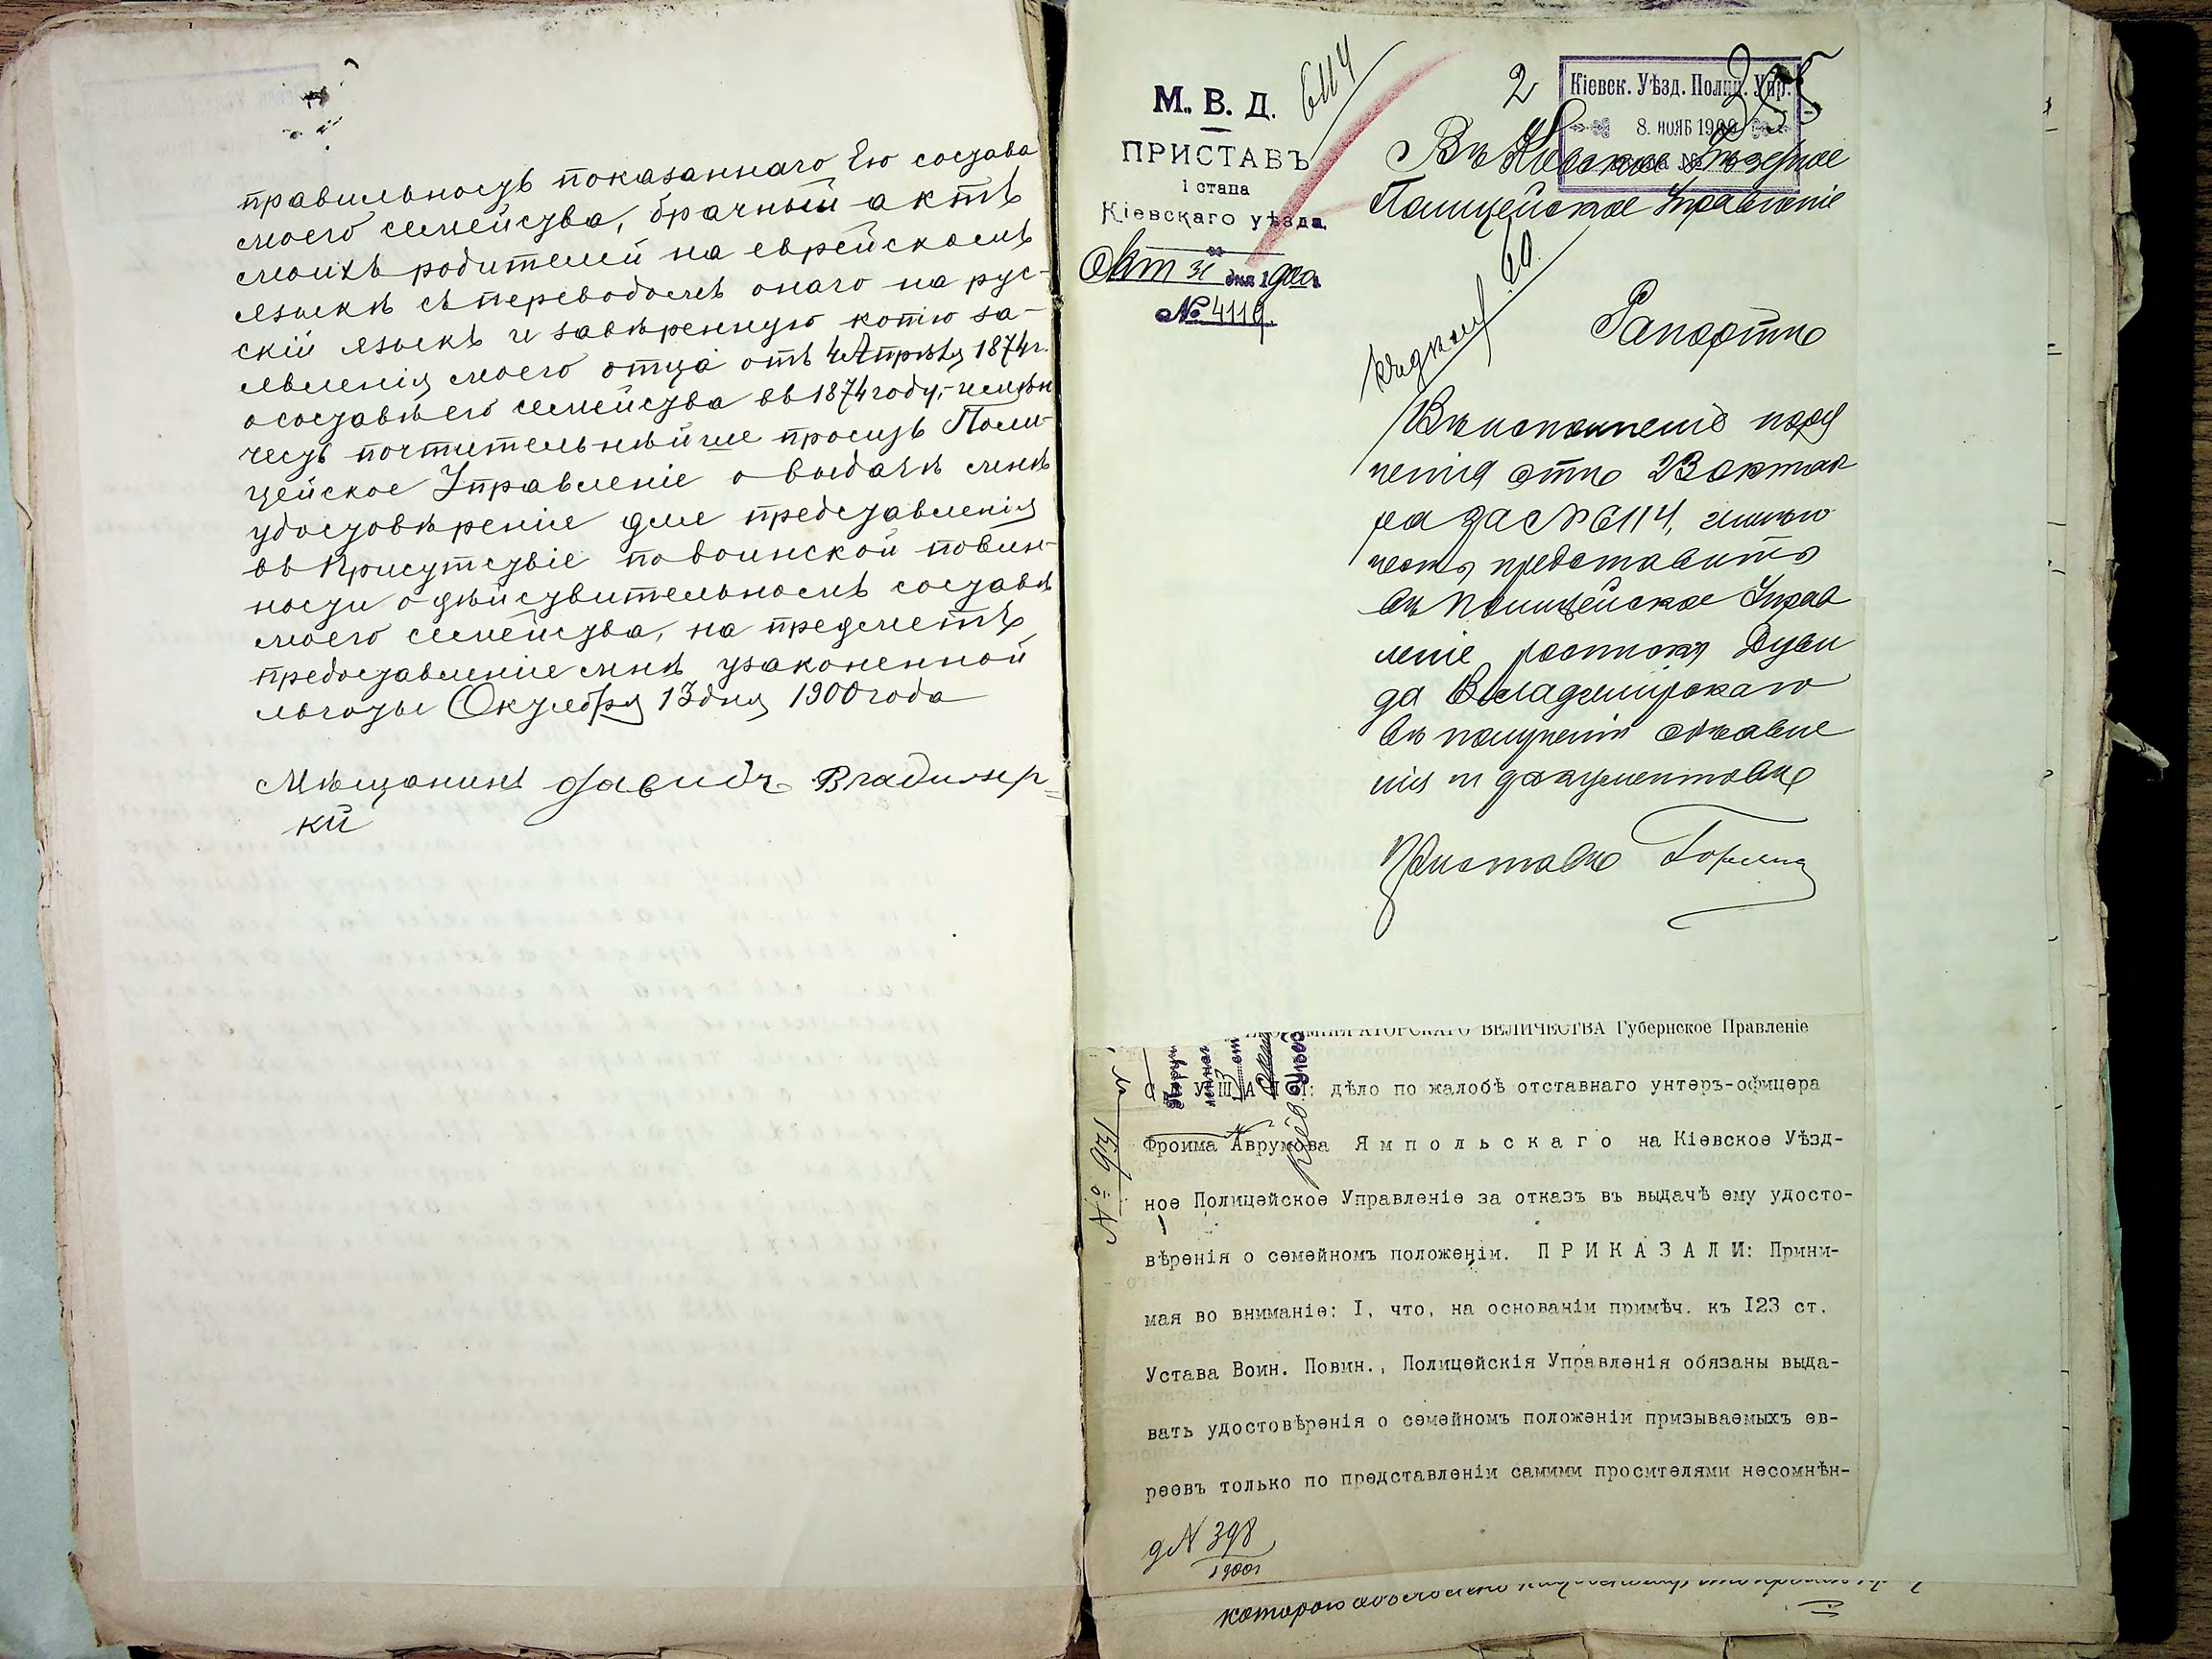 правильность показаннаго Ею состава
моего семейства, брачный актъ
моихъ родителей на еврейскомъ
языкѣ съ переводомъ онаго на рус-
скій языкъ и завѣренную копію за-
явленія моего отца отъ 4 Апрѣля 1874 г.
о составѣ его семейства въ 1874 году, имѣю
честь почтительнѣйше просить Поли-
цейское Управленіе о выдачѣ мнѣ
удостовѣреніе для представленія
въ Присутствіе по воинской повин-
ности о дѣйствительномъ составѣ
моего семейства, на предметъ
предоставленіе мнѣ узаконенной
льготы Октября 13 дня 1900 года
Мѣщанинъ Давидъ Владимер=
кій
М. В. Д.
ПРИСТАВЪ
1 стана
Кіевскаго уѣзда
Окт 31 дня 1900 г.
№ 4119.
6114
2
355
Кіевск. Уѣзд. Полиц. Упр.
8. НОЯБ 1900
Въ Кіевское Уѣздное
Полицейское Управленіе
Рапортъ
Въ исполненіе пору
ченія отъ 23 октяб
ря за № 6114, имѣю
честь представить
въ Полицейское Управ
леніе росписку Дуви
да Владимірскаго
въ полученіи объявле
нія и документовъ
Приставъ
ВЕЛИЧЕСТВА Губернское Правленіе
С Л У Ш А Л И: дѣло по жалобѣ отставнаго унтеръ-офицера
Фроима Аврумова Я м п о л ь с к а г о на Кіевское Уѣзд-
ное Полицейское Управленіе за отказъ въ выдачѣ ему удосто-
вѣренія о семейномъ положеніи. П Р И К А З А Л И: Прини-
мая во вниманіе: I, что, на основаніи примѣч. къ I23 ст.
Устава Воин. Повин., Полицейскія Управленія обязаны выда-
вать удостовѣренія о семейномъ положеніи призываемыхъ ев-
реевъ только по представленіи самими просителями несомнѣн-
д № 398
1900 г
которою